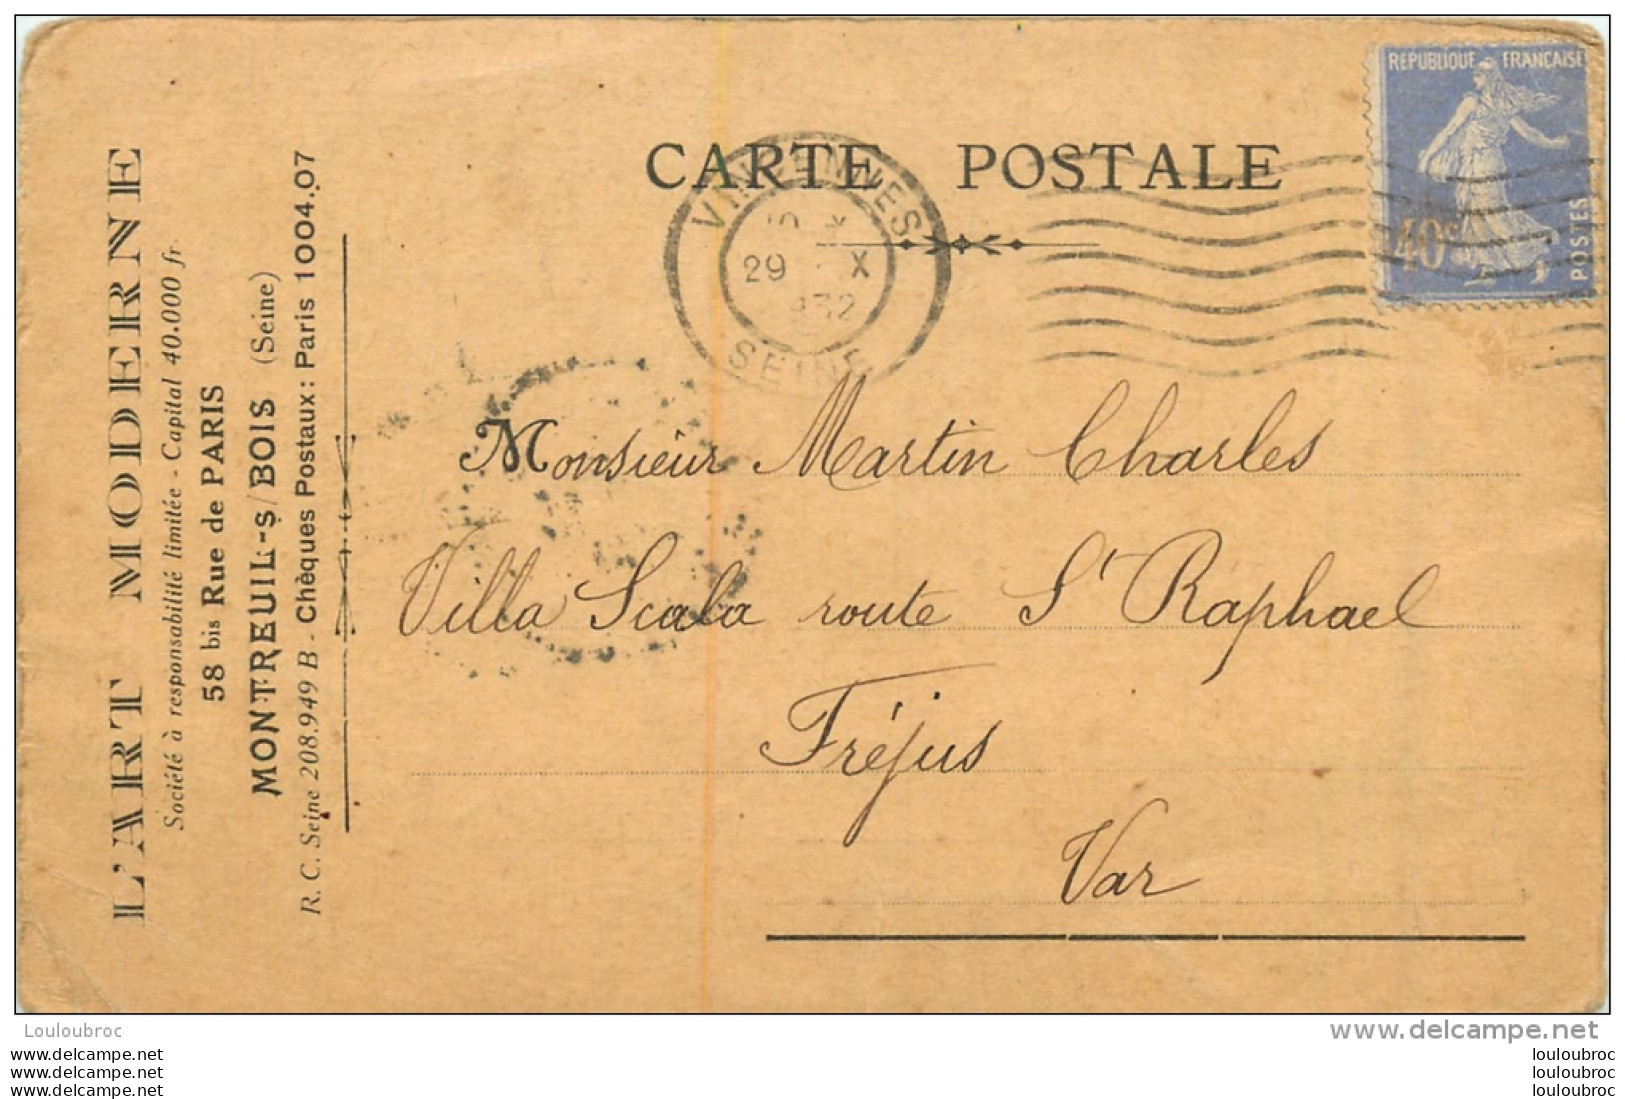 L'ART MODERNE
Société à responsabilité limitée - Capital 40.000 fr.
58 bis Rue de PARIS
MONTREUIL-S/BOIS (Seine)
R. C. Seine 208.949 B - Chèques Postaux: Paris 1004.07
CARTE POSTALE
REPUBLIQUE FRANÇAISE
40c
POSTES
VINCENNES
29 X
1932
SEINE
Monsieur Martin Charles
Villa Scala route St Raphael
Fréjus
Var
Louloubroc
www.delcampe.net
www.delcampe.net
www.delcampe.net
www.delcampe.net
louloubroc
louloubroc
louloubroc